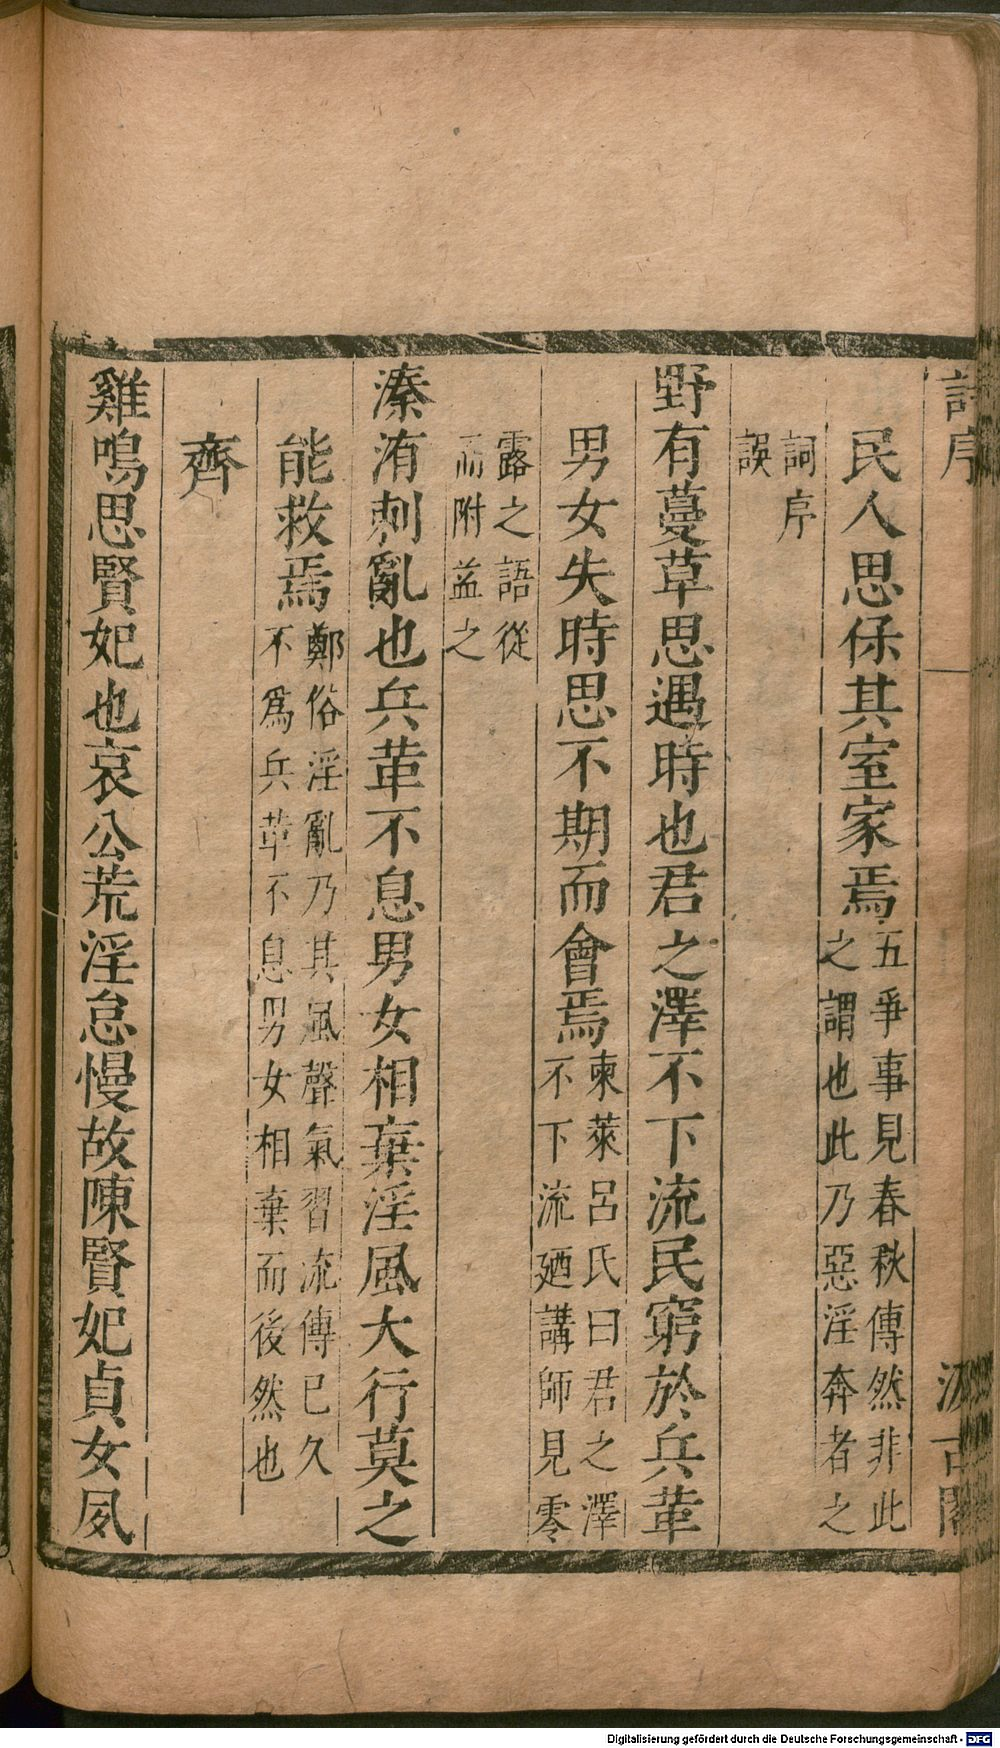 詩序
汲古閣
民人思保其室家焉五爭事見春秋傳然非此
之謂也此乃惡淫奔者之
詞序
誤
野有蔓草思遇時也君之澤不下流民窮於兵革
男女失時思不期而會焉東萊呂氏曰君之澤
不下流廼講師見零
露之語從
而附益之
溱洧刺亂也兵革不息男女相棄淫風大行莫之
能救焉鄭俗淫亂乃其風聲氣習流傳已久
不爲兵革不息男女相棄而後然也
齊
雞鳴思賢妃也哀公荒淫怠慢故陳賢妃貞女夙
Digitalisierung gefördert durch die Deutsche Forschungsgemeinschaft - DFG